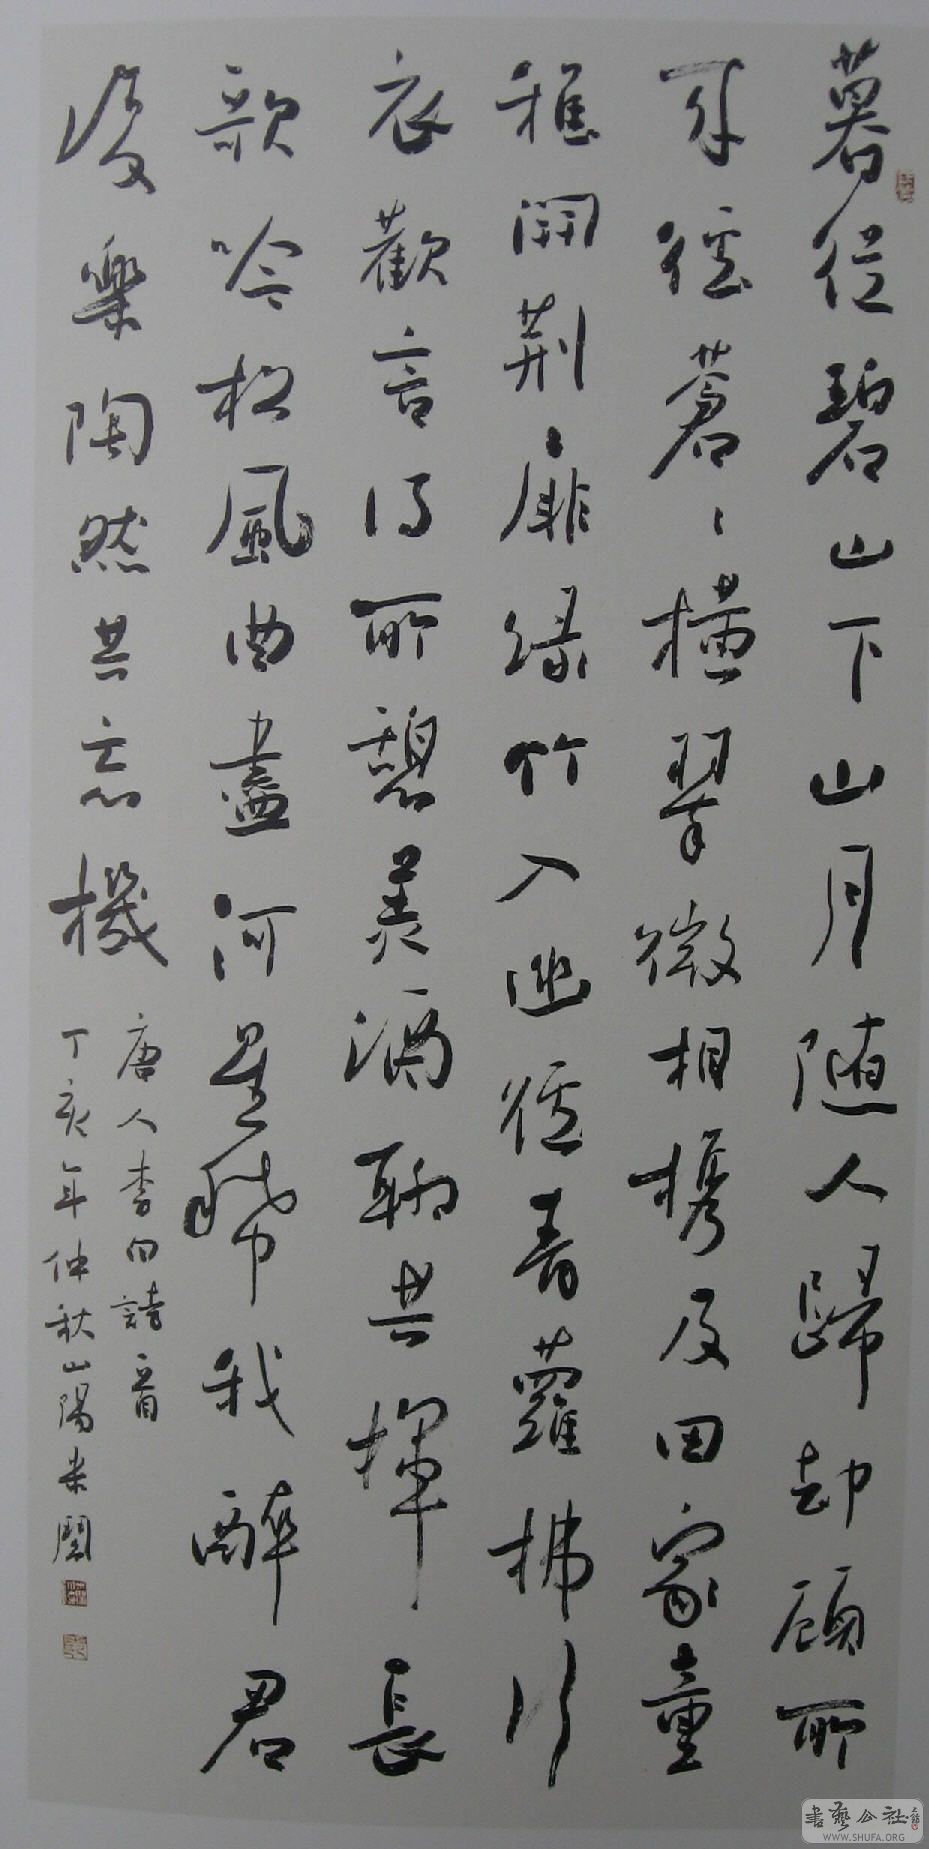 暮從碧山下山月随人歸却顧所
来徑蒼〻橫翠微相携及田家童
稚開荆〻扉綠竹入幽徑青蘿拂行
衣歡言得所憩美酒聊共揮長
歌吟松風曲盡河星稀我醉君
復樂陶然共忘機
唐人李白詩一首
丁亥年仲秋山陽
書藝公社
WWW.SHUFA.ORG